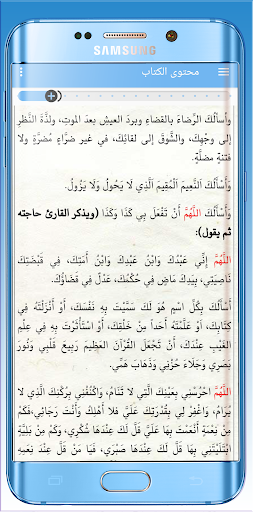 SAMSUNG
محتوى الكتاب
وَأَسأَلُكَ الرِّضَاءَ بِالقَضَاءِ وبردَ العيشِ بعدَ الموتِ، ولَذَّةَ النَّظرِ
إلى وجْهِكَ، والشَّوقَ إلى لقائِكَ، في غير ضَراءَ مُضرَّةٍ ولا
فتنةٍ مضلَّةٍ.
وَأَسْأَلُكَ النَّعِيمَ الْمُقِيمَ الَّذِي لَا يَحُولُ وَلَا يَزُولُ.
وَأَسْأَلُكَ اللَّهُمَّ أَنْ تَفْعَلَ بِي كَذَا وَكَذَا (ويذكر القارئ حاجته
ثم يقول):
اللَّهُمَّ إِنِّي عَبْدُكَ وَابْنُ عَبْدِكَ وَابْنُ أَمَتِكَ، فِي قَبْضَتِكَ
نَاصِيَتِي، بِيَدِكَ مَاضٍ فِي حُكْمُكَ، عَدْلٌ فِي قَضَاؤُكَ.
أَسْأَلُكَ بِكُلِّ اسْمٍ هُوَ لَكَ سَمَّيْتَ بِهِ نَفْسَكَ، أَوْ أَنْزَلْتَهُ فِي
كِتَابِكَ، أَوْ عَلَّمْتَهُ أَحَداً مِنْ خَلْقِكَ، أَوْ اسْتَأْثَرْتَ بِهِ فِي عِلْمِ
الْغَيْبِ عِنْدَكَ، أَنْ تَجْعَلَ الْقُرْآنَ الْعَظِيمَ رَبِيعَ قَلْبِي وَنُورَ
بَصَرِي وَجَلَاءَ حُزْنِي وَذَهَابَ هَمِّي.
اللَّهُمَّ احْرُسْنِي بِعَيْنِكَ الَّتِي لَا تَنَامُ، وَاكْنُفْنِي بِرُكْنِكَ الَّذِي لا
يُرَامُ، وَاغْفِرْ لِي بِقُدْرَتِكَ عَلَيَّ فَلَا أَهْلِكُ وَأَنْتَ رَجَائِي،فَكَمْ
مِنْ نِعْمَةٍ أَنْعَمْتَ بِهَا عَلَيَّ قَلَّ لَكَ عِنْدَهَا شُكْرِي، وَكَمْ مِنْ بَلِيَّةٍ
ابْتَلَيْتَنِي بِهَا قَلَّ لَكَ عِنْدَهَا صَبْرِي، فَيَا مَنْ قَلَّ عِنْدَ نِعَمِهِ